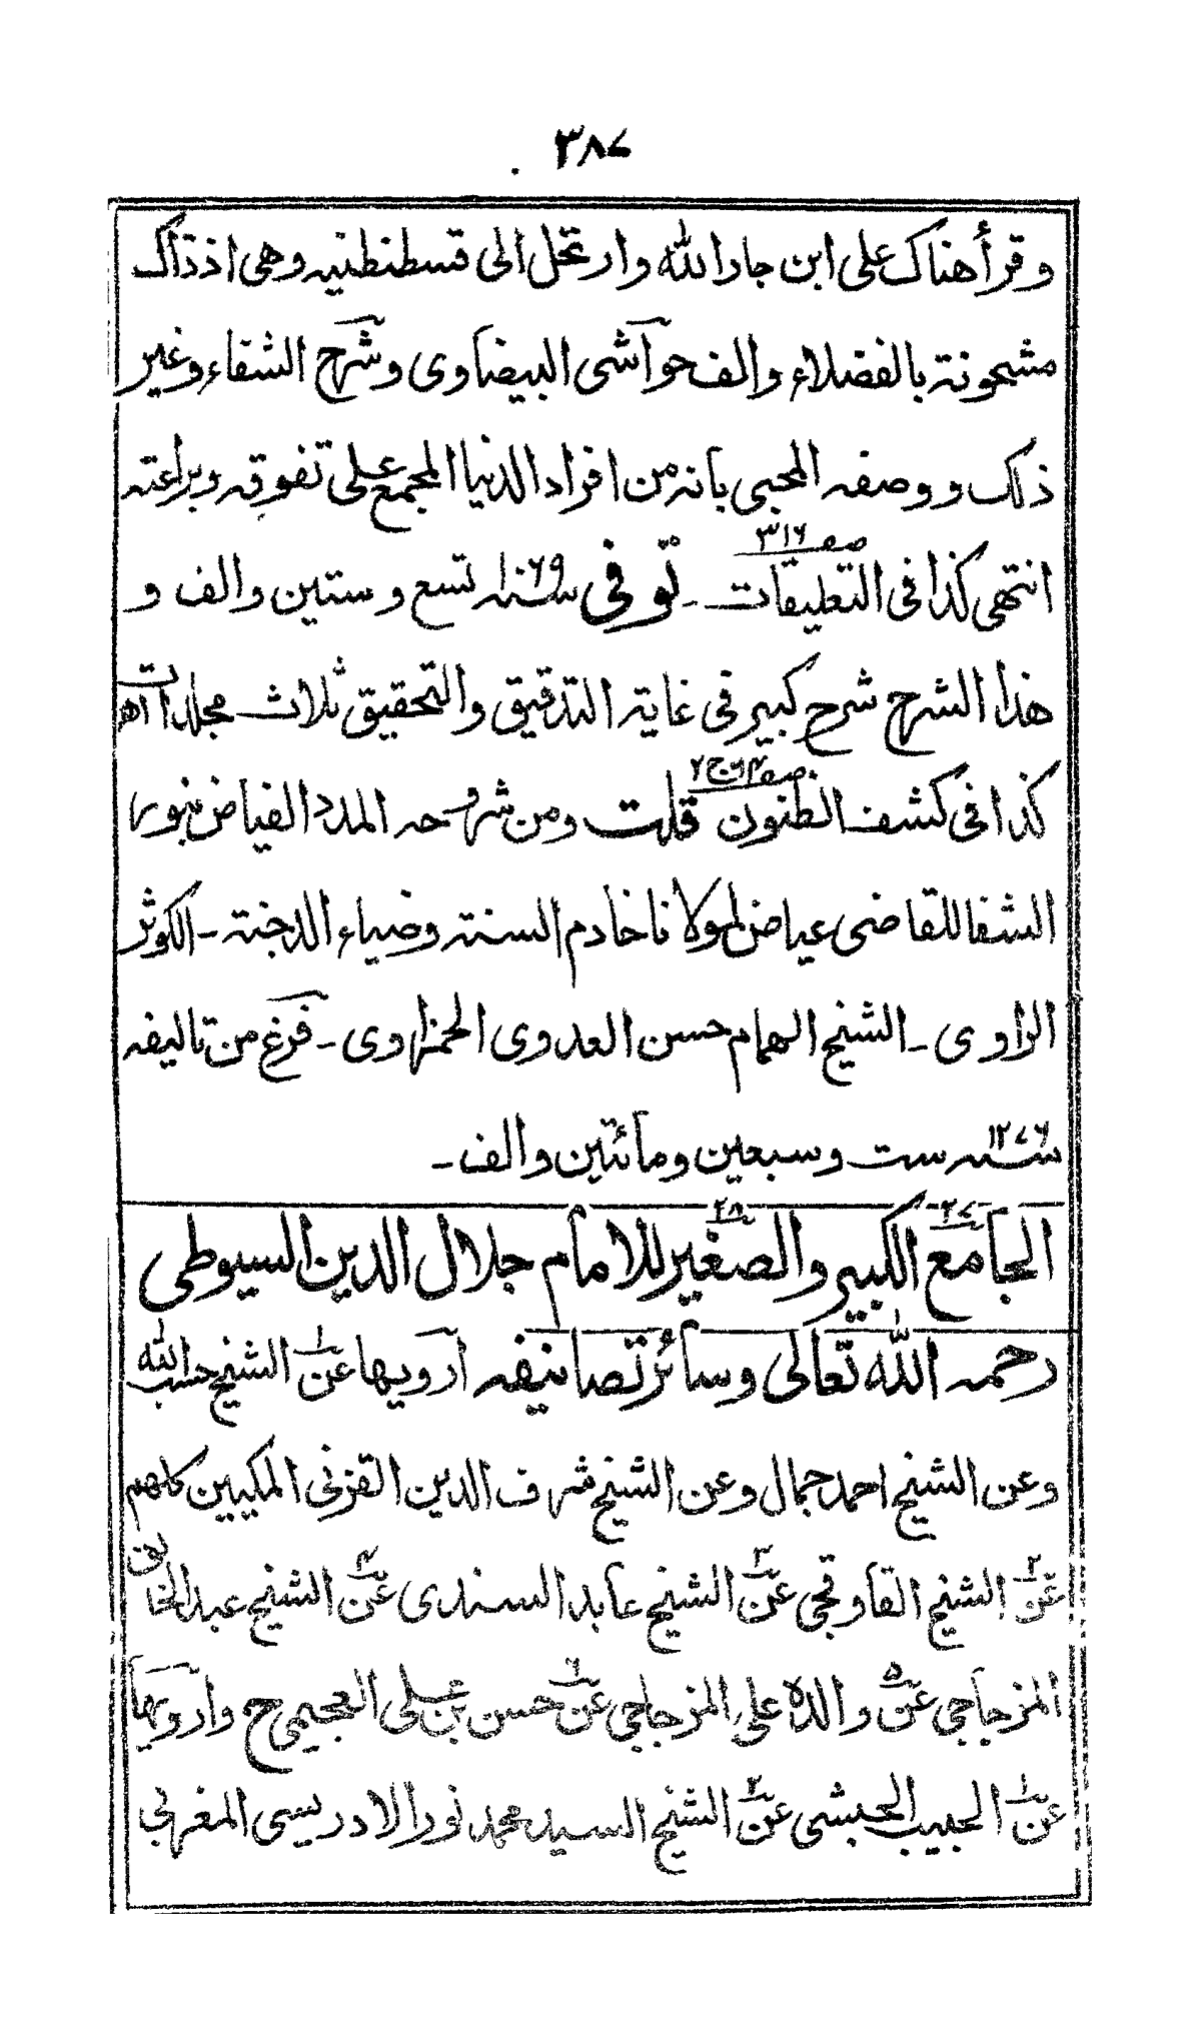 ٣٨٧
وقرأ هناك على ابن جار الله وارتحل الى قسطنطنيه وهى اذ ذاك
مشحونة بالفضلاء والف حواشى البيضاوى وشرح الشفاء وغير
ذلك ووصفه المحبى بانه من افراد الدنيا المجمع على تفوقه وبراعته
انتهى كذا فى التعليقات صف ٣١٦ ـ توفى سنة ١٠٦٩ تسع وستين والف و
هذا الشرح شرح كبير فى غاية التدقيق والتحقيق ثلاث مجلدات اه
كذا فى كشف الظنون قلت ومن شروحه المدد الفياض بنور
الشفا للقاضى عياض لمولانا خادم السنة وضياء الدجنة ـ الكوثر
الراوى ـ الشيخ الهمام حسن العدوى الحمزاوى ـ فرغ من تاليفه
سنة ١٢٧٦ ست وسبعين ومائتين والف ـ
الجامع ٢٧ الكبير والصغير ٢٨ للامام جلال الدين السيوطى
رحمه الله تعالى وسائر تصانيفه ارويها عن ١ الشيخ حسب الله
وعن الشيخ احمد جمال وعن الشيخ شرف الدين القزنى المكيين كلهم
عن ٢ الشيخ القاوقجى عن ٣ الشيخ عابد السندى عن ٤ الشيخ عبد الخالق
المزجاجى عن ٥ والده على المزجاجى عن ٦ حسن بن على العجيمى ح وارويها
عن ١ الحبيب الحبشى عن ٢ الشيخ السيد محمد نور الادريسى المغربى